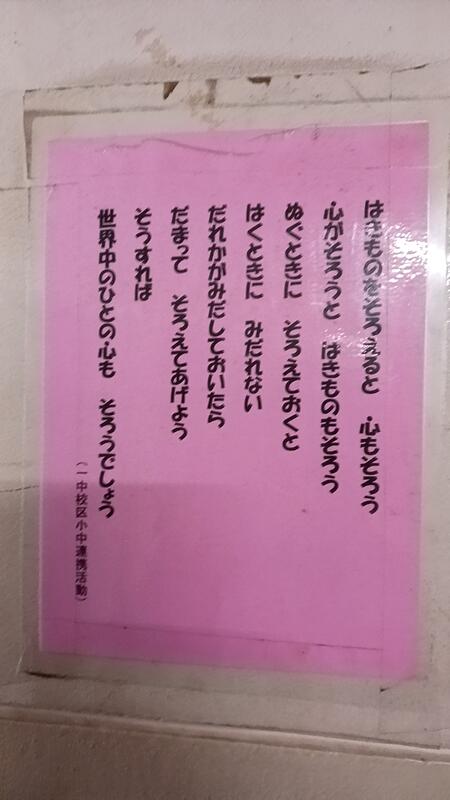 はきものをそろえると　心もそろう
心がそろうと　はきものもそろう
ぬぐときに　そろえておくと
はくときに　みだれない
だれかがみだしておいたら
だまって　そろえてあげよう
そうすれば
世界中のひとの心も　そろうでしょう
（一中校区小中連携活動）